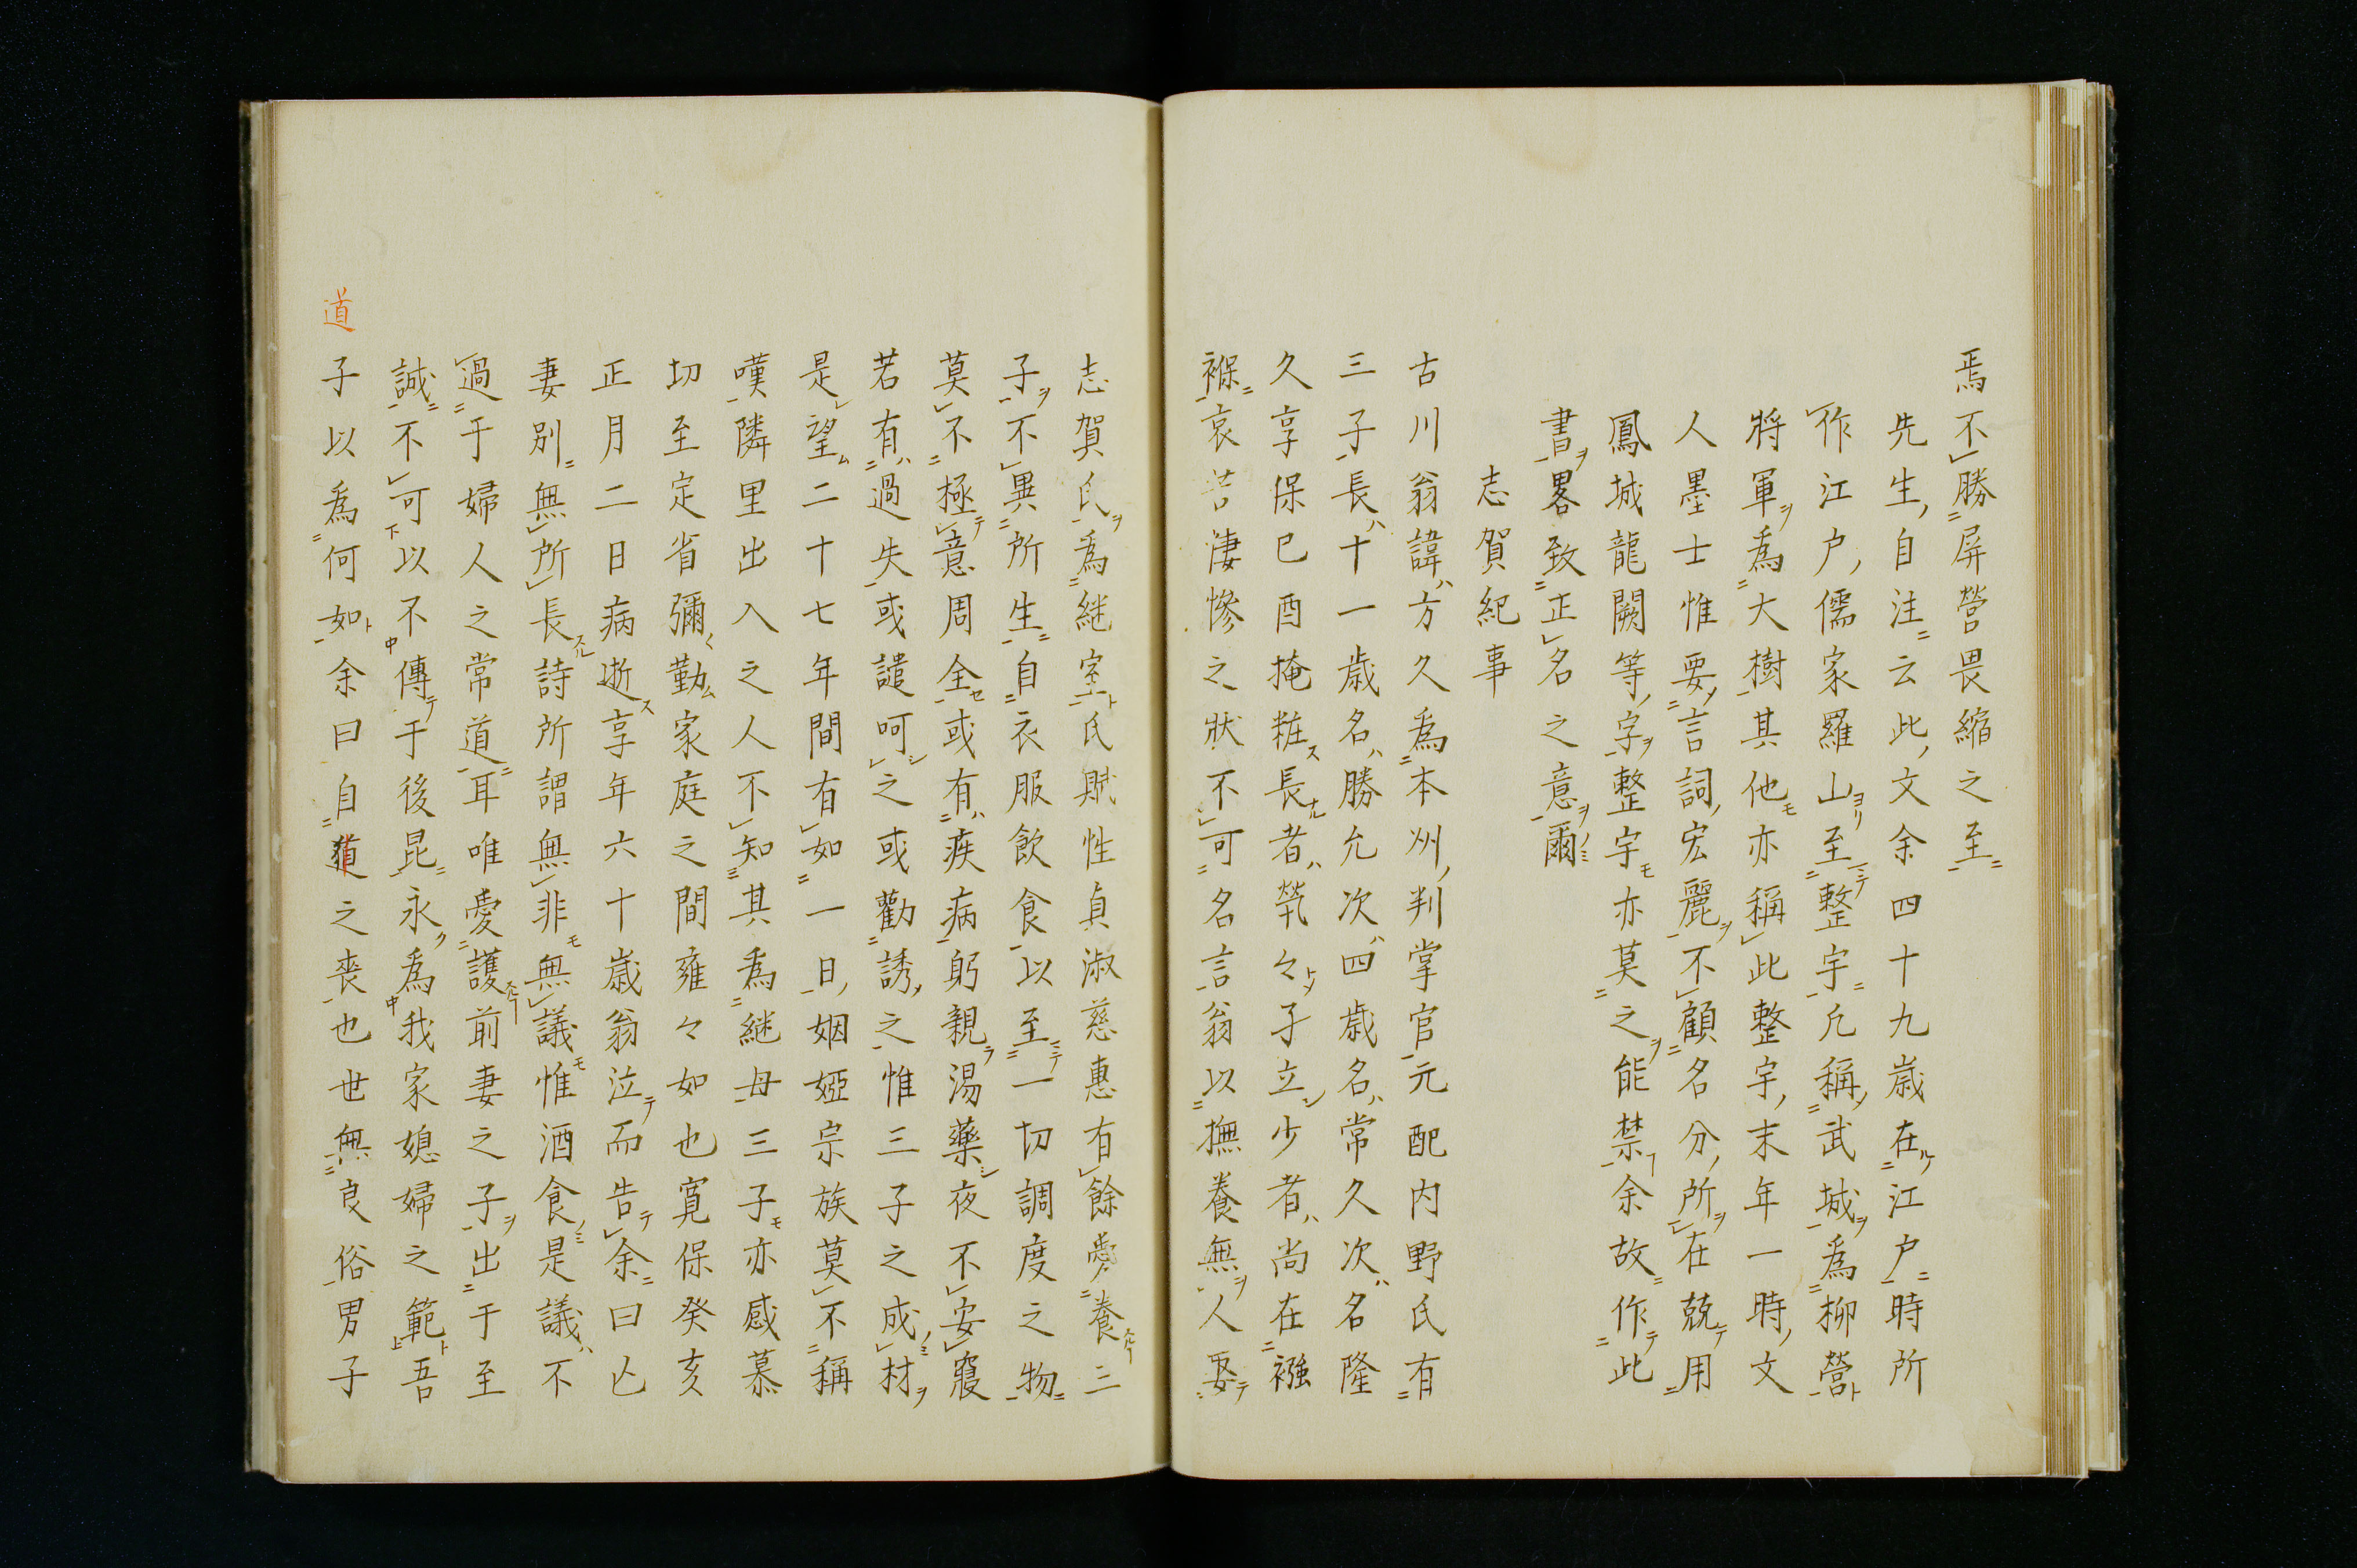 焉不勝屏營畏縮之至
先生自注云此文余四十九歳在江戸時所
作江戸儒家羅山至整宇凢稱武城為柳營
將軍為大樹其他亦稱此整宇末年一時文
人墨士惟要言詞宏麗不顧名分所在兢用
鳳城龍闕等字整宇亦莫之能禁余故作此
書畧致正名之意爾
志賀紀事
古川翁諱方久為本州判掌官元配内野氏有
三子長十一歳名勝允次四歳名常久次名隆
久享保已酉掩粧長者煢々孑立少者尚在襁
褓哀苦凄惨之状不可名言翁以撫養無人娶
志賀氏為継室氏賦性貞淑慈惠有餘愛養三
子不異所生自衣服飲食以至一切調度之物
莫不極意周全或有疾病躬親湯藥夜不安寢
若有過失或譴呵之或勸誘之惟三子之成材
是望二十七年間有如一日姻婭宗族莫不稱
嘆隣里出入之人不知其為継母三子亦感慕
切至定省彌勤家庭之間雍々如也寛保癸亥
正月二日病逝享年六十歳翁泣而告余曰亡
妻別無所長詩所謂無非無議惟酒食是議不
過于婦人之常道耳唯愛護前妻之子出于至
誠不可以不傳于後昆永為我家媳婦之範吾
子以為何如余曰自道之喪也世無良俗男子
道